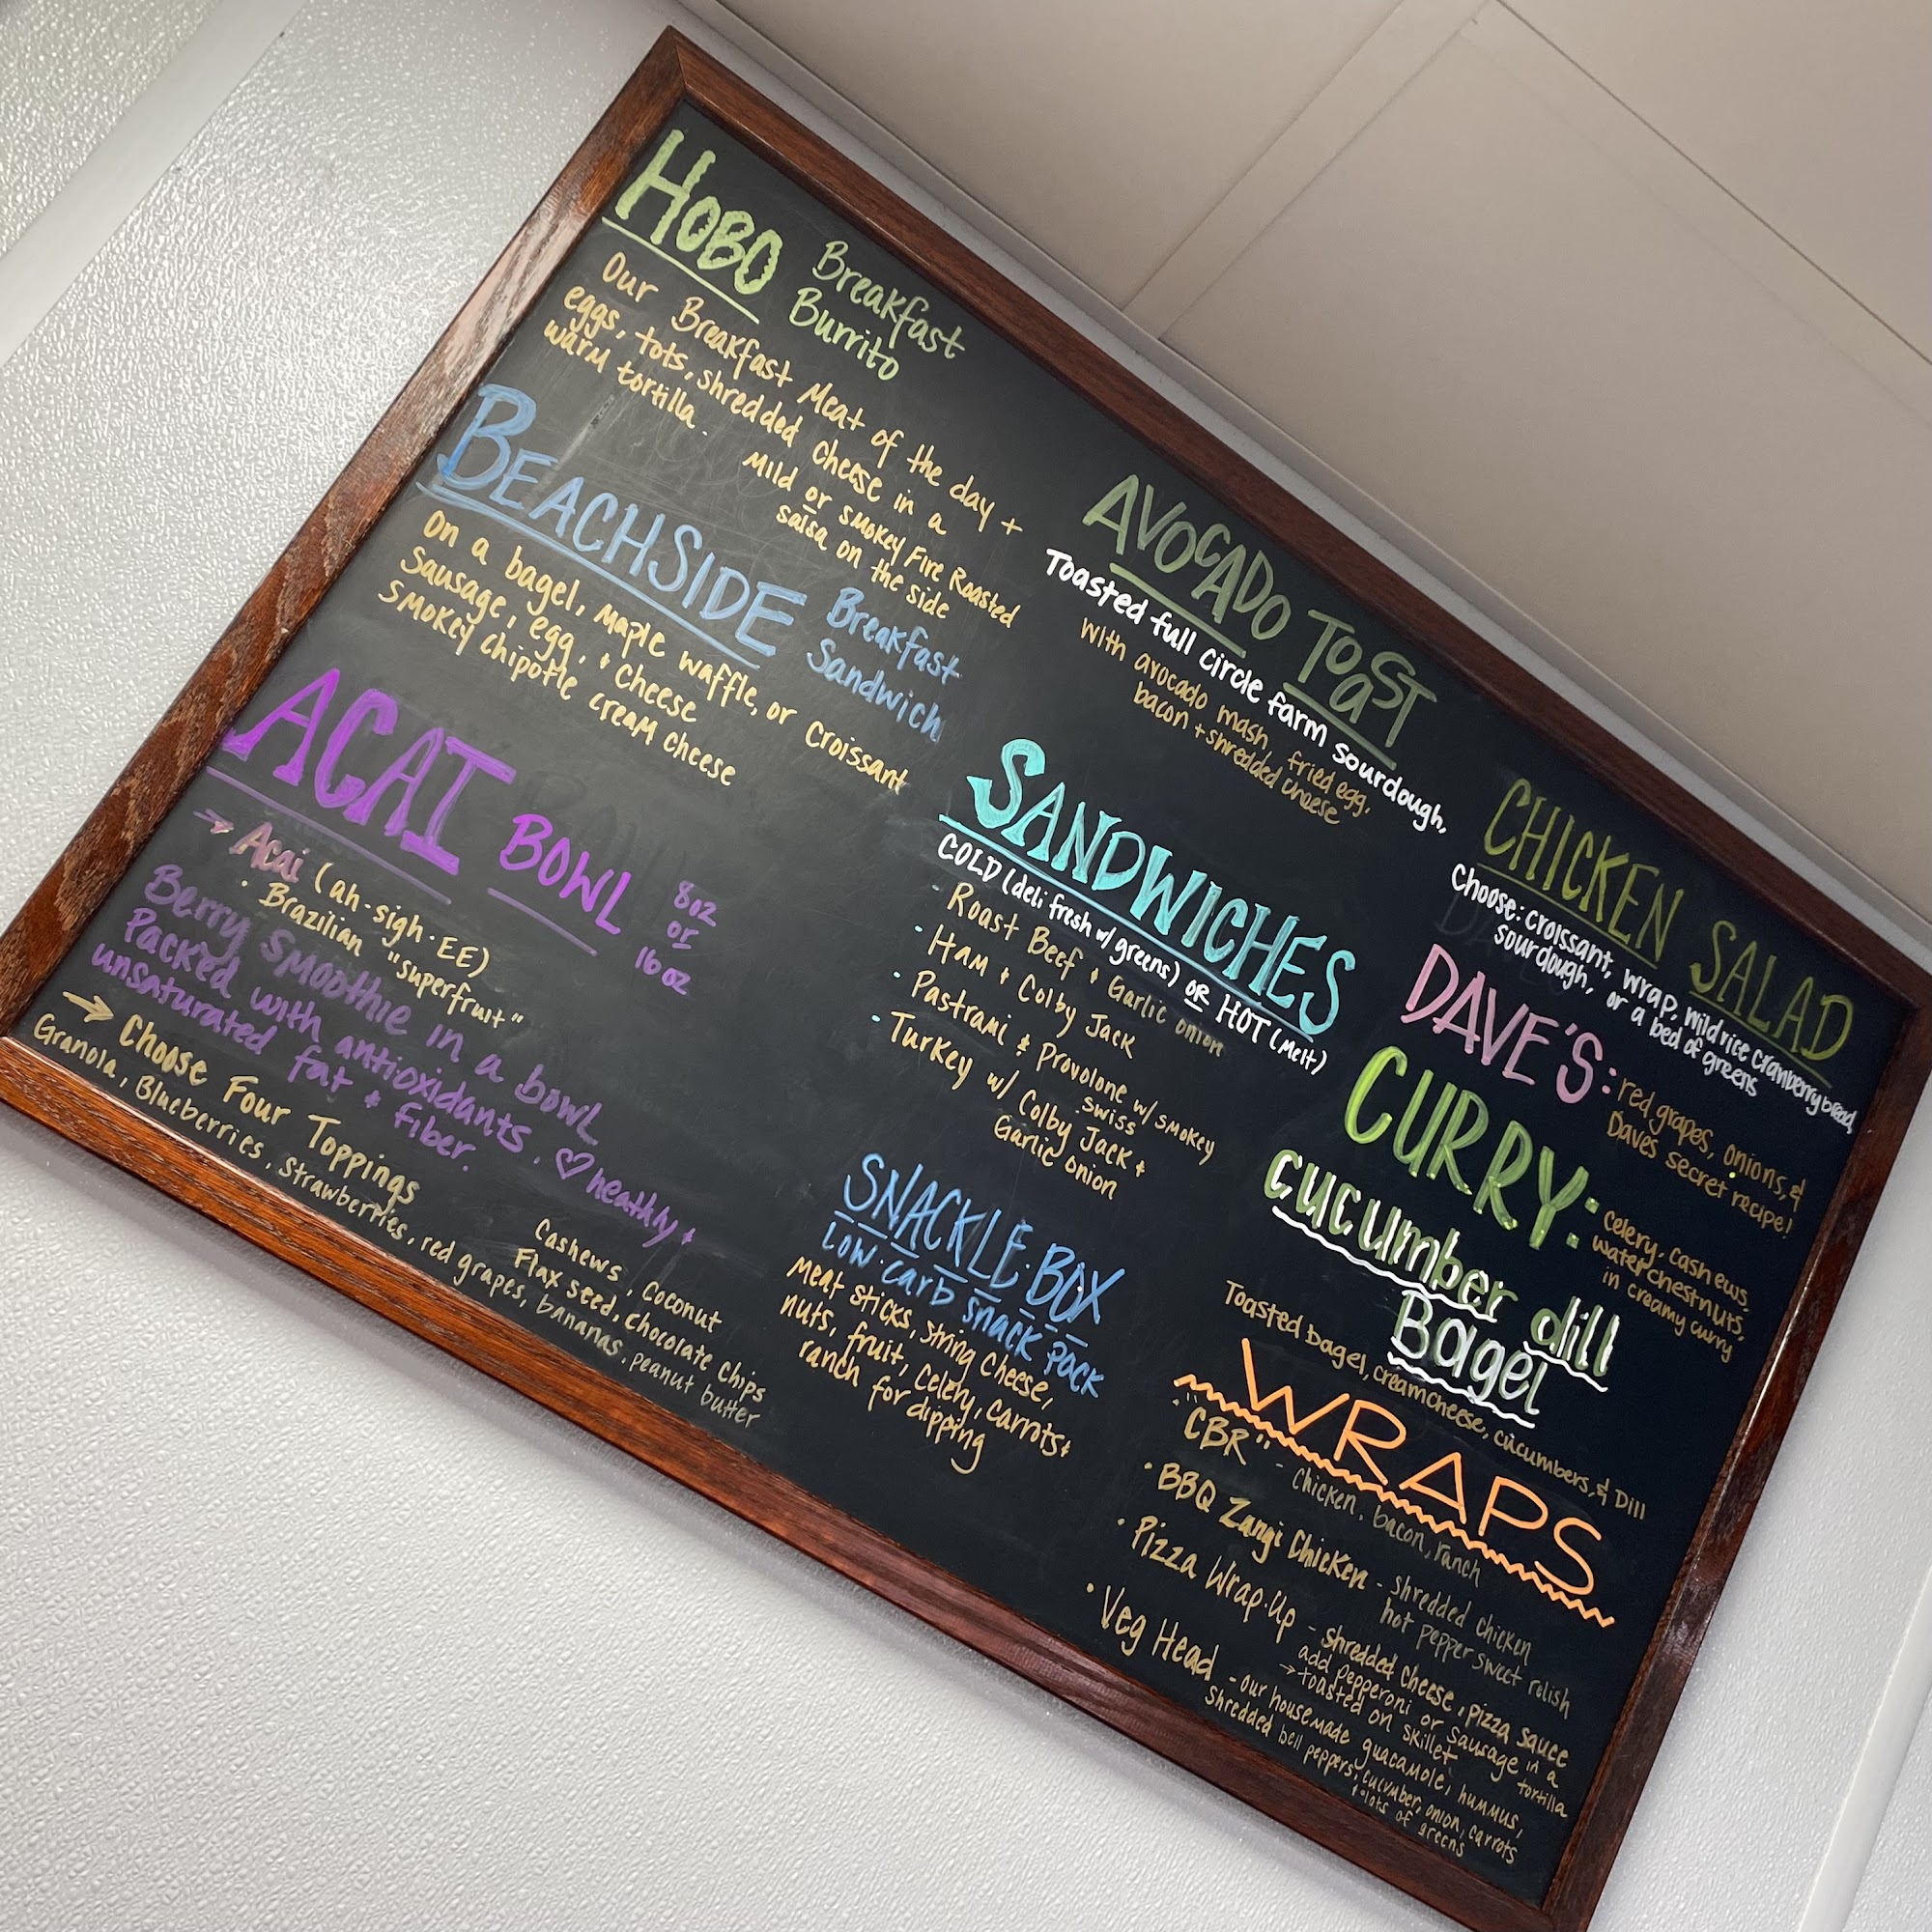 HOBO Breakfast Burrito
Our Breakfast Meat of the day +
eggs, tots, shredded cheese in a
warm tortilla.
Mild or smokey Fire Roasted
salsa on the side
BEACHSIDE Breakfast Sandwich
On a bagel, maple waffle, or croissant
Sausage, egg, + cheese
smokey chipotle cream cheese
ACAI BOWL
8oz
or
16 oz
→ Acai (ah-sigh-EE)
· Brazilian "superfruit"
Berry Smoothie in a bowl
Packed with antioxidants. ♡heathly +
unsaturated fat + fiber.
→ Choose Four Toppings
Cashews, Coconut
Flax seed, chocolate chips
Granola, Blueberries, strawberries, red grapes, bananas, peanut butter
AVOCADO TOaST
Toasted full circle farm sourdough,
with avocado mash, fried egg,
bacon + shredded cheese
SANDWICHES
COLD (deli fresh w/ greens) OR HOT (melt)
· Roast Beef + Garlic onion
· Ham + Colby Jack
· Pastrami & Provolone w/ smokey
swiss
· Turkey w/ Colby Jack +
Garlic onion
SNACKLE·BOX
Low·carb snack pack
Meat sticks, string cheese,
nuts, fruit, celery, carrots+
ranch for dipping
CHICKEN SALAD
Choose: croissant, wrap, wild rice cranberry bread,
sourdough, or a bed of greens
DAVE'S: red grapes, onions, &
Dave's secret recipe!
CURRY: celery, cashews,
water chestnuts,
in creamy curry
cucumber dill
Bagel
Toasted bagel, creamcheese, cucumbers, & Dill
WRAPS
· "CBR" - chicken, bacon, ranch
· BBQ Zangi Chicken - shredded chicken
hot pepper sweet relish
· Pizza Wrap·Up - shredded cheese, pizza sauce
add pepperoni or sausage in a
→ toasted on skillet tortilla
· Veg Head - our housemade guacamole, hummus,
shredded bell peppers, cucumber, onion, carrots
+ lots of greens